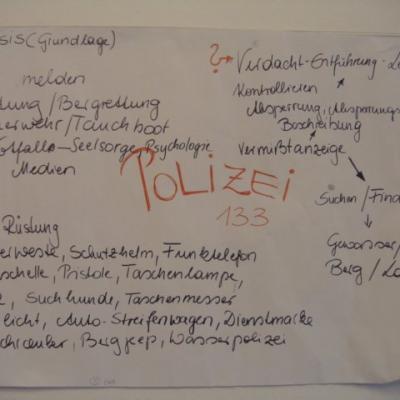 sis (Grundlage)
melden
dung/Bergrettung
erwehr/Tauchboot
otfalls-Seelsorge, Psychologie
Medien
? Verdacht-Entführung
Kontrollieren
Absperrung, Absperrungs
Beschreibung
Vermißtanzeige
Suchen/Find
Gewässer/
Berg/La
POLIZEI
133
Rüstung
erweste, Schutzhelm, Funktelefon
schelle, Pistole, Taschenlampe,
Suchhunde, Taschenmesser
licht, Auto-Streifenwagen, Dienstmarke
Bergjeep, Wasserpolizei